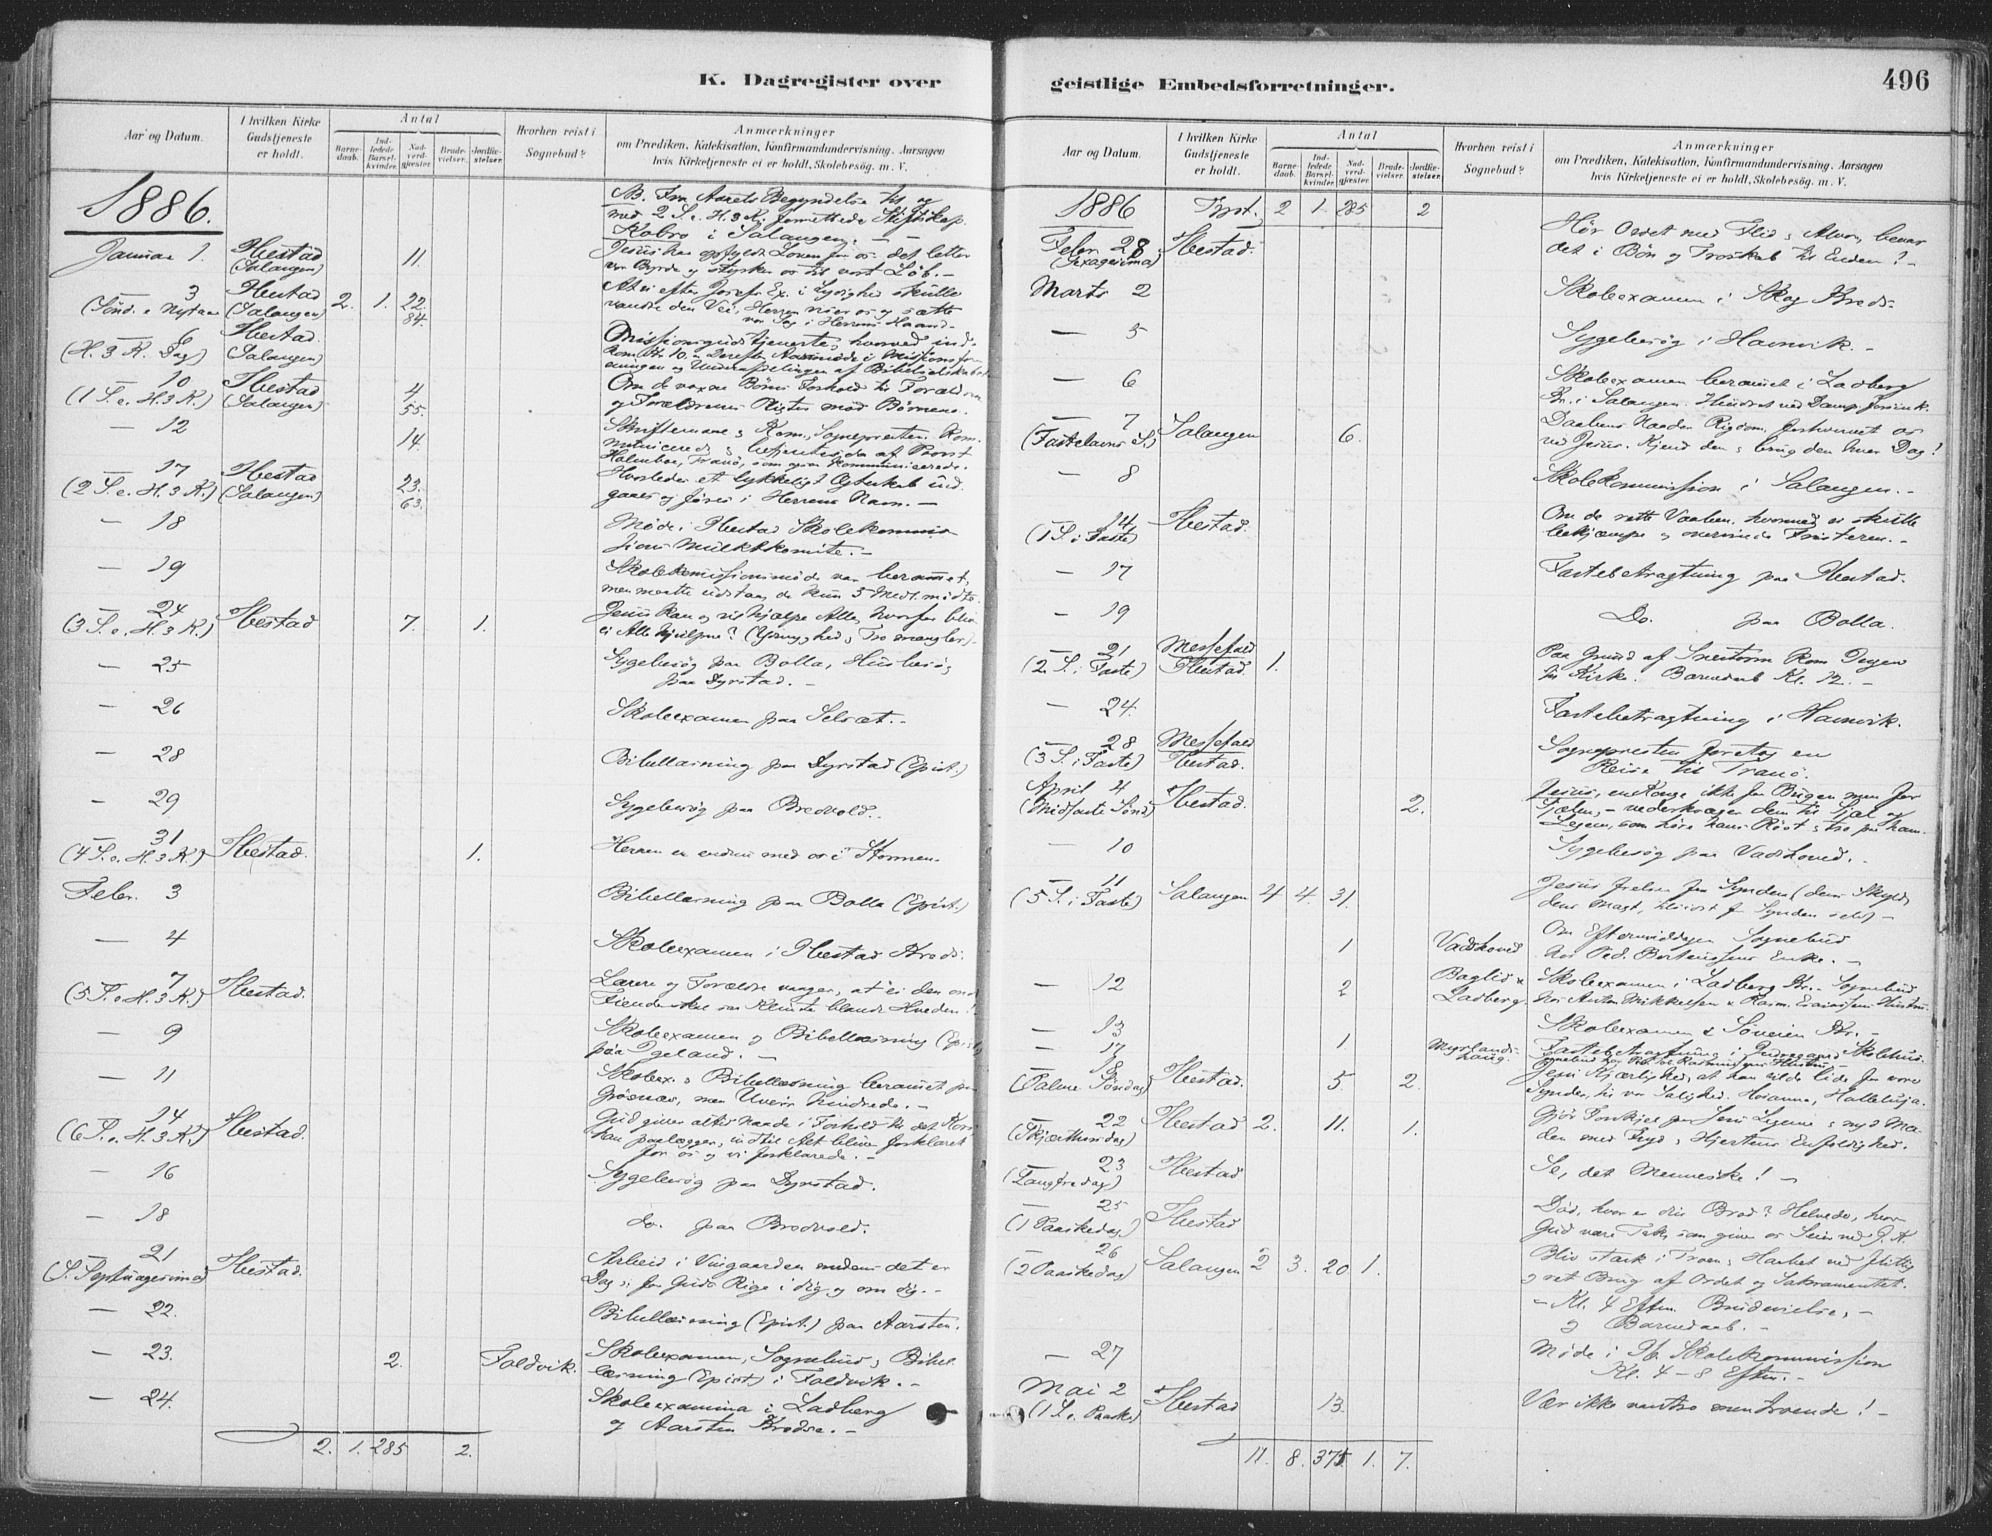 K. Dagregister over
Aar og Datum.
I hvilken Kirke Gudstjeneste er holdt.
Antal
Barne-daab.
Ind-ledede Barsel-kvinder.
Nad-verd-gjester.
Brude-vielser.
Jordfæ-stelser.
Hvorhen reist i Sognebud?
Anmærkninger
om Prædiken, Katekisation, Konfirmandundervisning. Aarsagen
hvis Kirketjeneste ei er holdt, Skolebesøg. m. V.
1886.
NB. Fra Aarets Begyndelse til og
med 2 S. e. H. 3 K. forrettede Stiftskap.
Kobro i Salangen. —
Januar 1. Ibestad (Salangen) 11. Jesus har opfyldt Loven for os. det letter
vor Byrde og styrker os til vort Løb. —
— 3 (Sønd. e. Nytaar) Ibestad (Salangen) 2. 1. 22. 84. At vi efter Josefs Ex. i Lydighed skulle
vandre den Vei, Herren viser os og sætte
vor Sag i Herrens Haand.
— 6 (H. 3 K. Dag) Ibestad (Salangen) Missionsgudstjeneste, hvorved ind-
kom Kr. 10. Derefter Aarsmøde i Missionsfor-
eningen og Underafdelingen af Bibelselskabet.
— 10 (1 S. e. H. 3 K.) Ibestad (Salangen) 4 55. Om de voxne Børns Forhold til Forældrene
og Forældrenes Pligter mod Børnene.
— 12 14. Skriftemaal & Kom., Sognepresten Kom-
municerede & betjentes da af Provst
Holmboe, Tranø, som ogsaa kommunicerede.
— 17 (2 S. e. H. 3 K.) Ibestad (Salangen) 23. 63. Hvorledes et lykkeligt Ægteskab ind-
gaaes og føres i Herrens Navn. —
— 18 Møde i Ibestad Skolekommis-
sion
— 19 Skolekommissionsmøde var berammet,
men maatte udstaa, da kun 3 Medl. mødte.
— 24 (3 S. e. H. 3 K.) Ibestad 7. 1. Jesus kan og vil hjælpe Alle, hvorfor bliver
ei Alle hjulpne? (Ydmyghed & Tro mangler).
— 25 Sygebesøg paa Bolla, Husbesøg
paa Dyrstad. —
— 26 Skoleexamen paa Selsæt. —
— 28 Bibellæsning paa Dyrstad (Epist.)
— 29 Sygebesøg paa Bredvold. —
— 31 (4 S. e. H. 3 K.) Ibestad. 1. Herren er endnu med os i Stormen.
Febr. 3 Bibellæsning paa Bolla (Epist.)
— 4 Skoleexamen i Ibestad Kreds.
— 7 (5 S. e. H. 3 K.) Ibestad. Lærere og Forældre vaager, at ei den onde
Fiende skal saa Klinte blandt Hveden!
— 9 Skoleexamen og Bibellæsning (Epist.)
paa Igeland. —
— 11 Skoleex. & Bibellæsning berammet paa
Grøsnæs, men Uveir hindrede. —
— 14 (6 S. e. H. 3 K.) Ibestad. Gud giver altid Naade i Forhold til det Kors
han paalægger, indtil Alt bliver forklaret
for os og vi forklarede. —
— 16 Sygebesøg paa Dyrstad.
— 18 Do. paa Bredvold.
— 21 (S. Septuagesima) Ibestad. Arbeid i Vingaarden medens det er
Dag, for Guds Rige i dig og om dig. —
— 22. Bibellæsning (Epist.) paa Aarsten.
— 23. 2. Foldvik. Skoleexamen, Sognebud & Bibel-
læsning (Epist.) i Foldvik. —
— 24. Skoleexamina i Ladberg
og Aarsten Kredse. —
2. 1. 285 2.
geistlige Embedsforretninger.
496
Aar og Datum.
I hvilken Kirke Gudstjeneste er holdt.
Antal
Barne-daab.
Ind-ledede Barsel-kvinder.
Nad-verd-gjester.
Brude-vielser.
Jordfæ-stelser.
Hvorhen reist i Sognebud?
Anmærkninger
om Prædiken, Katekisation, Konfirmandundervisning. Aarsagen
hvis Kirketjeneste ei er holdt, Skolebesøg. m. V.
1886 Trsp. 2 1. 285 2
Febr. 28 (Sexagesima) Ibestad. Hør Ordet med Flid & Alvor, bevar
det i Bøn og Troskab til Enden! —
Marts 2 Skoleexamen i Skog Kreds.
— 5 Sygebesøg i Havnvik. —
— 6 Skoleexamen berammet i Ladberg
Kr. i Salangen. Hindret ved
— 7 (Fastelavns S.) Salangen 6. Daabens Naades Rigdom, forhvervet os
ved Jesus. Kjend den & brug den hver Dag!
— 8 Skolekommission i Salangen. —
— 14 (1 S. i Faste) Ibestad. Om de rette Vaaben, hvormed vi skulle
bekjæmpe og overvinde Fristeren. —
— 17 Fastebetragtning paa Ibestad.
— 19 Do. paa Bolla.
— 21 (2 S. i Faste) Messefald Ibestad. 1. Paa Grund af Snestorm kom Ingen
til Kirke. Barnedaab Kl. 12. —
— 24. Fastebetragtning i Havnvik.
— 28 (3 S. i Faste) Messefald Ibestad. Sognepresten foretog en
Reise til Tranø.
April 4 (Midfaste Sønd) Ibestad. 2. Jesus, en Konge ikke for Bugen men for
Sjælen, — vederkvæger dem til Sjæl og
Legem, som høre hans Røst & tro paa ham.
— 10 Sygebesøg paa Vadshoved. —
— 11 (5 S. i Faste) Salangen 4 4. 31. Jesus frelser fra Synden (dens Skyld,
dens Magt, tilsidst fra Synden selv) —
1 Vadshoved Om Eftermiddagen Sognebud
hos Ped. Bertheussens Enke. —
— 12 2 Baglid & Ladberg Skoleexamen i Ladberg Kr. Sognebud
hos Anton Mikkelsen & Rasm. Hustru.
— 13 Skoleexamen i Søveien Kr. —
— 17 1 Myrlands-haug. Fastebetragtning i Skolehus.
Sognebud hos Rasmussens Hustru.
— 18 (Palme Søndag) Ibestad. 5 2. Jesu Kjærlighed, at han vilde lide for vore
Synder, til vor Salighed. Hosanna, Halleluja.
— 22 (Skjærthorsdag) Ibestad 2. 11. 1. Gjør Forskjel paa Jesu Legeme & nyd Ma-
den med Fryd & Hjertens Enfoldighed.
— 23 (Langfredag) Ibestad Se, det Menneske! —
— 25 (1 Paaskedag) Ibestad Død, hvor er din Brod? Helvede, hvor
Gud være Tak, som giver os Seier ved J. K.
— 26 (2 Paaskedag) Salangen 2 3. 20 1. Bliv stærk i Troen & Haabet ved flittig
og ret Brug af Ordet og Sakramentet.
— Kl. 4 Efterm. Brudevielse, —
& Barnedaab. —
— 27 Møde i Ib. Skolekommission
Kl. 4 – 8 Efterm. —
Mai 2 (1 S. e. Paaske) Ibestad 13. Vær ikke vantro men troende! —
11. 8. 375 1. 7.